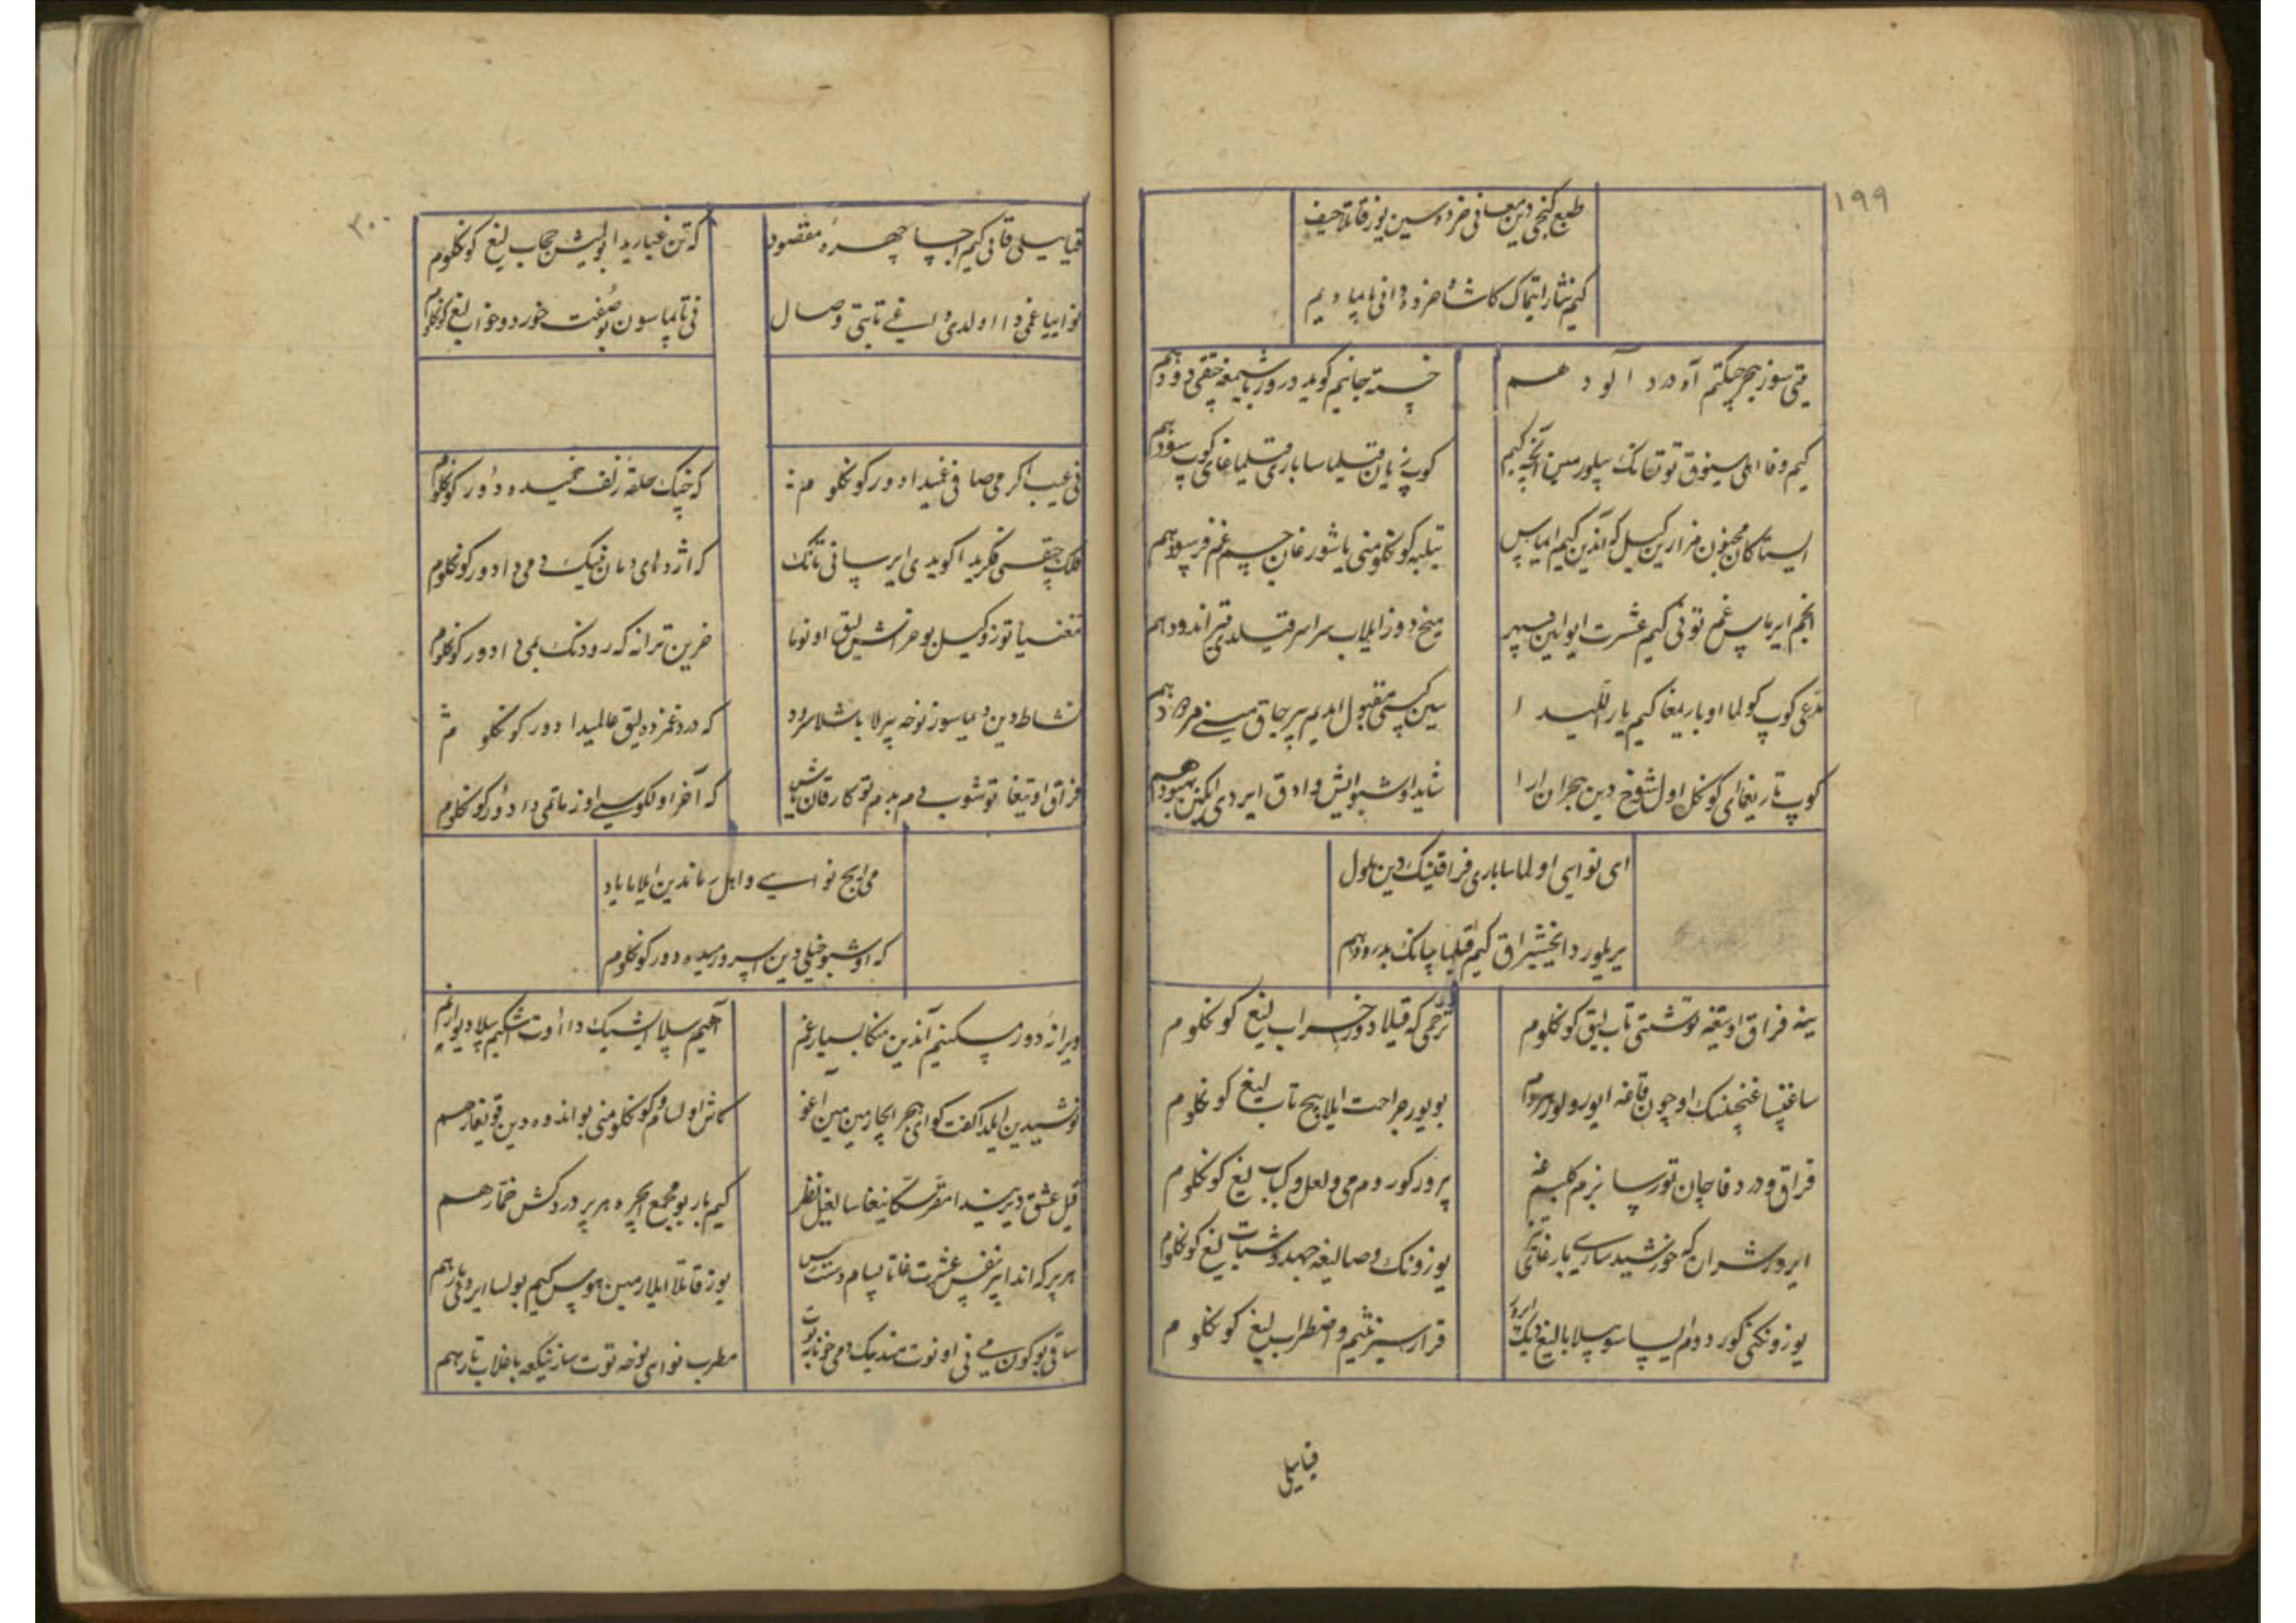 ١٩٩
طبع گنجی دین معانی خرده سین یوز قاتلا حیف
کیم نثار ایتماک کا شاه خرده دانی تاپمادیم
یتی سوز هجر چیکتم آه درد آلود هم
خسته جانیم کویدور
کیم وفا اهلی سینوق توتقانک بیلورمین آنچه کیم
کوپ زیان قیلماسا باری قیلماغای کوپ سود هم
ایستاکان مجنون مزارین کیل کور آندین کیم ایماس
تیلبه کونکلومنی یاشورغان جسم غم فرسود هم
انجم ایرماس غم تونی کیم عشرت ایوانین سپهر
میخ دوز ایلاب سراسر قیلدی قیر اندود هم
مدعی کوپ کولما اوباریمغا کیم یار آللیدا
سین کبی مقبول ایدیم بیر چاق مینی مردود هم
کوپ تاریغمای کونکل اول شوخ دین هجران ارا
شاید اوشبو ایش دا ادق ایردی ایکین بهبود هم
ای نوایی اولماسا باری فراقینک دین ملول
یر بیلور دا یخشیراق کیم قیلماچانک بدرود هم
ینه فراق اوتیغه توشتی تاب لیق کونکلوم
ترحمی که قیلادور خراب لیغ کونکلوم
ساغینسا غنچنک اوچون قانغه ایورولور هر دم
بو یور جراحت ایلا پیچ تاب لیغ کونکلوم
فراق و درد قاچان تورسا بزم کلبم غه
بیرور کوروم می و لعل و کباب لیغ کونکلوم
ایرور شران که خورشید ساری بارغای
یوزونک وصالیغه جهد و شتاب لیغ کونکلوم
یوزونکنی کوردوم ایسا سو بیلا بالیغ دیک ایرور
قرارسیز تنیم و اضطراب لیغ کونکلوم
قیا سیلی
٢٠٠
قیا سیلی قانی کیم اچسا چهرهٔ مقصود
که تن غباریدا بولمیش حجاب لیغ کونکلوم
نوایا غمی دا اولدی ولی غه تاپتی وصال
نی تاپماسون بو صفت خورد و خواب لیغ کونکلوم
نی عیب اکر می صافی غمیدادور کونکلوم
که چنک حلقهٔ زلف خمیده دور کونکلوم
فلک چقسی فکریدا کویدی ایرسا نی تانک
که اژدهای دمان نینک دمی دادور کونکلوم
مغنیا توزوکیل بو حراش لیق اونونا
حزین ترانه که رودنک بمی دادور کونکلوم
نشاط دین دیماسوز نوحه بیرلا باشلا سرود
که درد غمزده لیق عالمیدادور کونکلوم
فراق اوتیغا توشوب دم بدم توکار قان یاش
که آخر اولکوسی اوز ماتمی دادور کونکلوم
می ایچ نوایی و اهل زماندین ایلاما یاد
که اوشبو خیلی دین اسرو رمیده دور کونکلوم
ویرانه دور مسکنیم آندین منکا بسیار غم
آهیم بیلا ایشیک دا اوت اشکیم بیلا دیوار نم
نوشیدین ایلدا کفت کوای هجر ایچارمین مین اغو
کاش اولسام و کونکلومنی بو اندوه دین قوتغارسم
قیل عشق دیریندا مقر سکانیغا سالغیل نظر
کیم بار بو مجمع ایچره هر بر دردکش خمار هم
هر بیر که اندا بیر نفس عشرت غا تاپسام دست رس
یوز قاتلا ایلارمین هوس کیم بولسا ایردی یار هم
ساقی بو کون می نی اونوت مندیک دمی خونابه یوت
مطرب نوای نوحه توت سازینکغه باغلاب تار هم